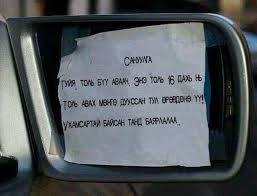 САНУУЛГА
ТУЙЯ, ТОЛЬ БҮҮ АВААЧ, ЭНЭ ТОЛЬ 16 ДАХЬ НЬ
ТОЛЬ АВАХ МӨНГӨ ДУУССАН ТУЛ ӨРӨВДӨНӨ ҮҮ!
УХАМСАРТАЙ БАЙСАН ТАНД БАЯРЛАЛАА.